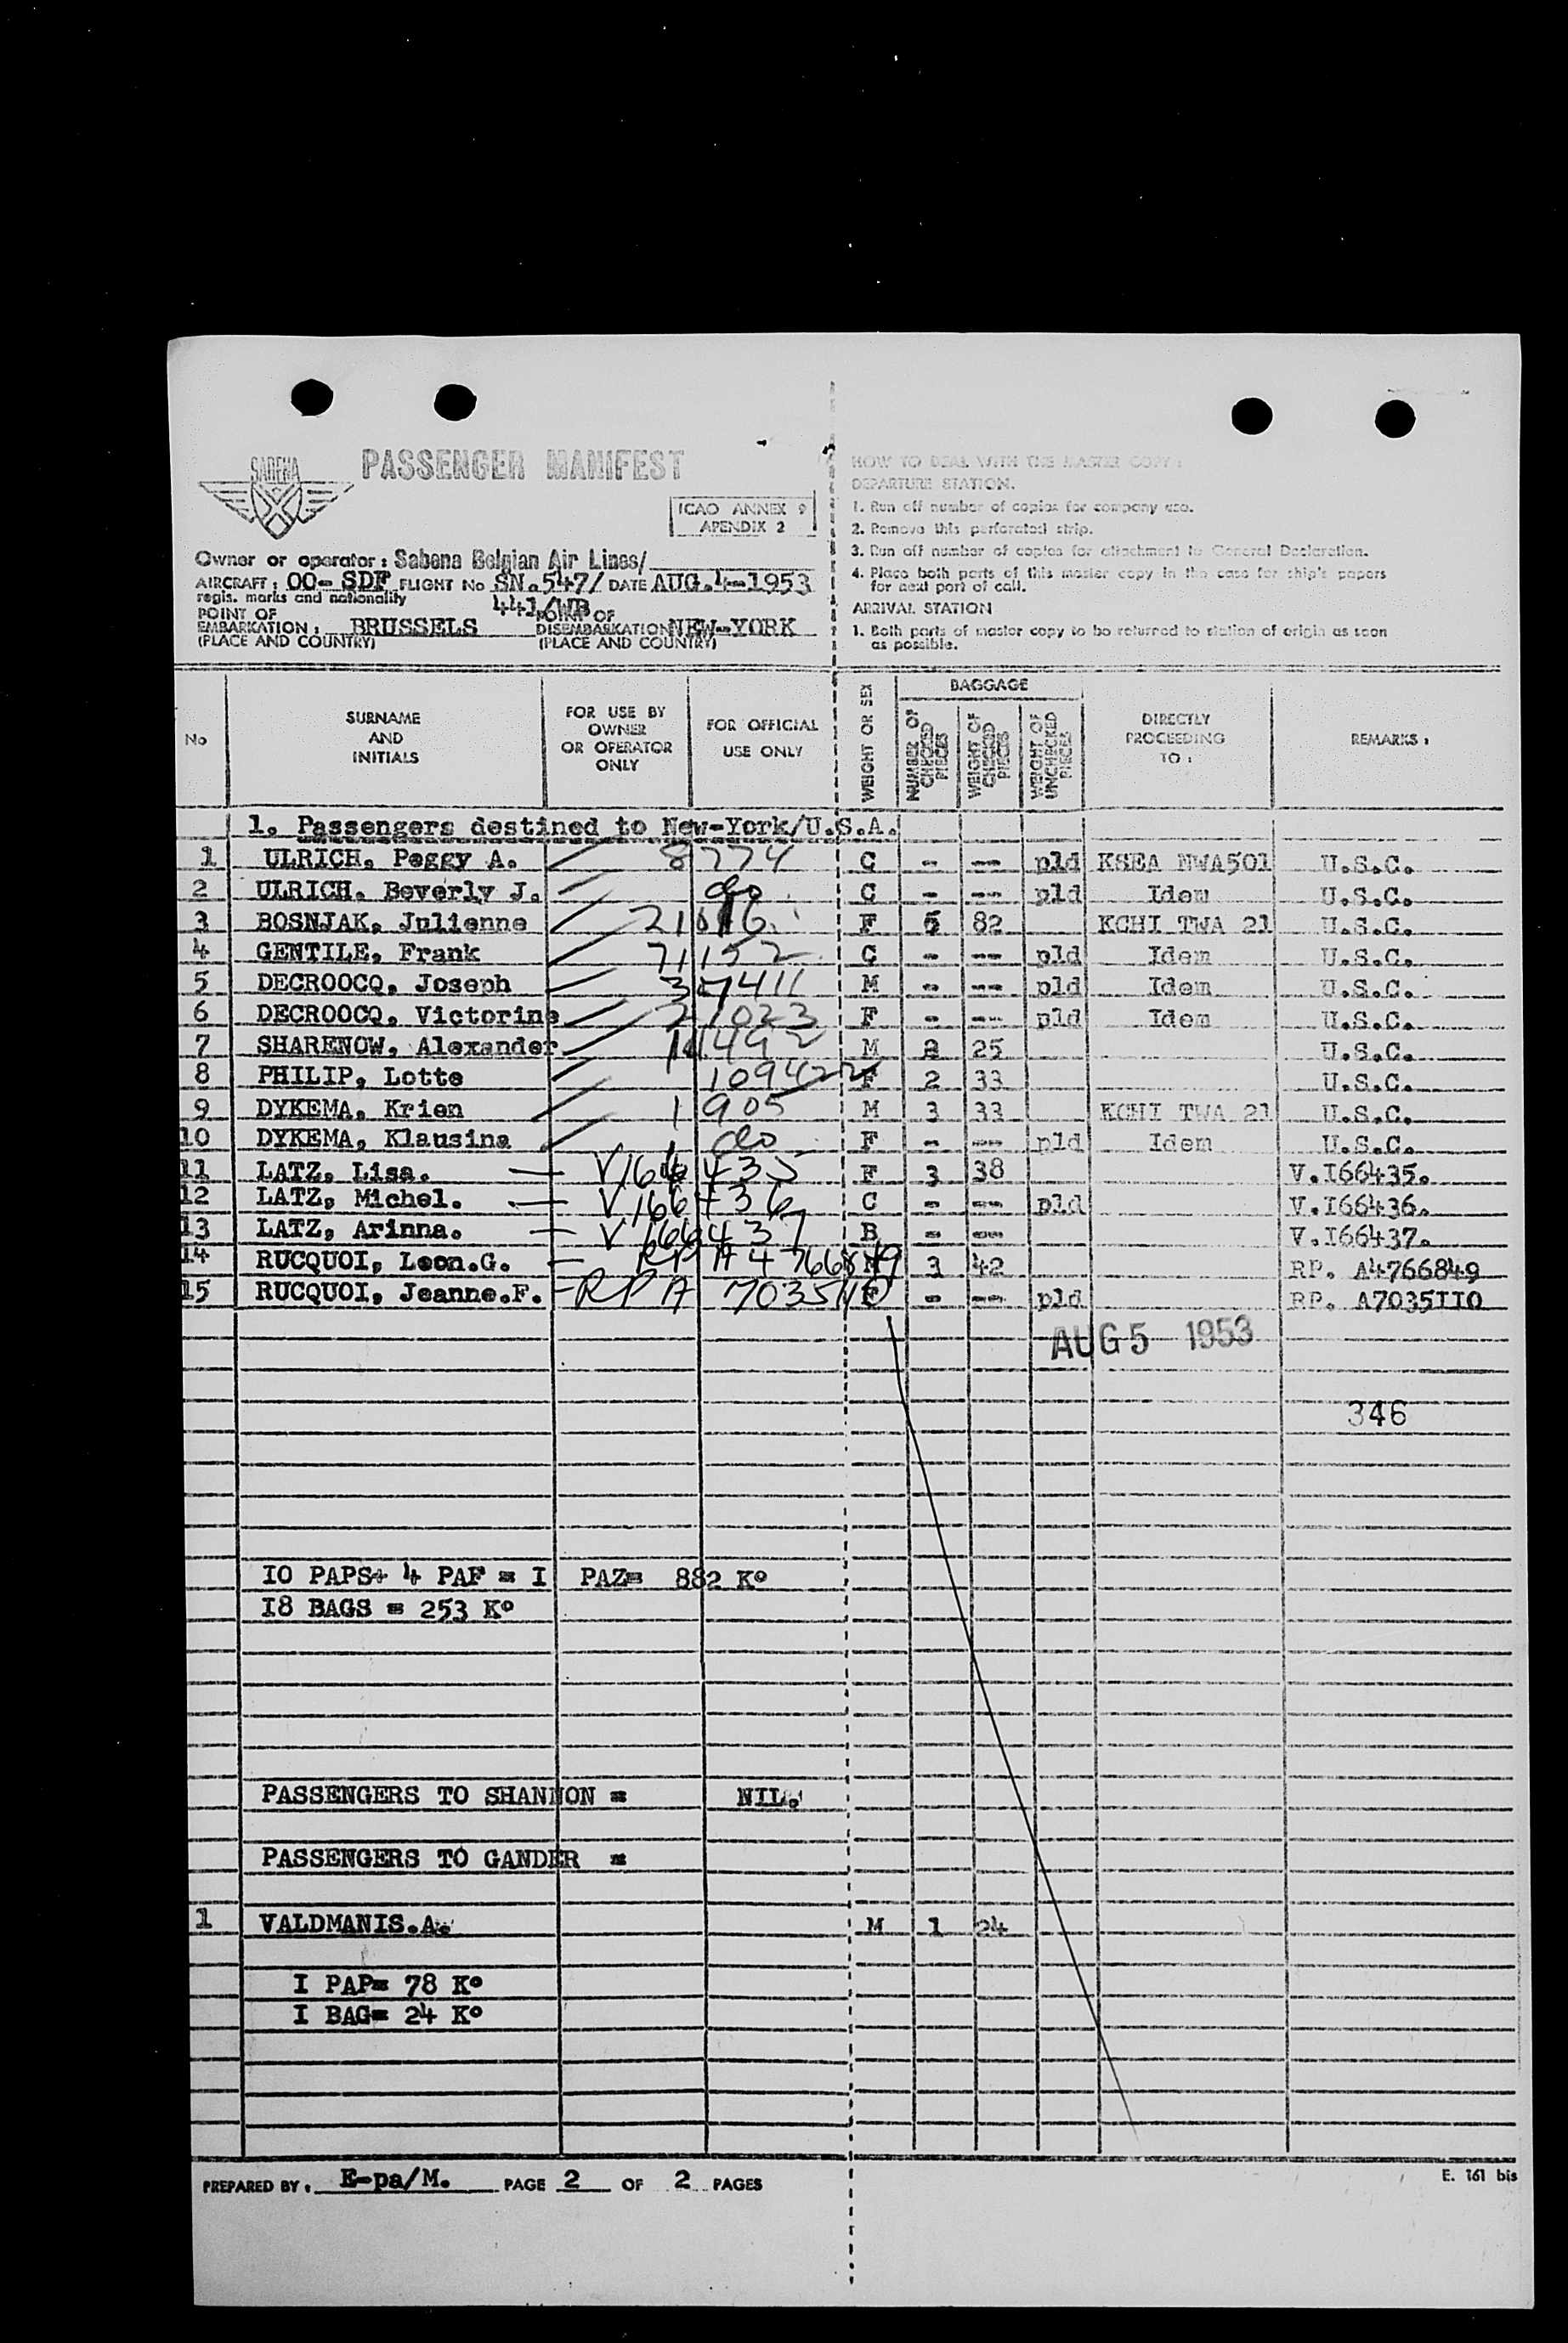 SABENA
PASSENGER MANIFEST
ICAO ANNEX 9
APENDIX 2
Owner or operator : Sabena Belgian Air Lines/
AIRCRAFT : OO-SDP FLIGHT No SN.547/ DATE AUG.4-1953
regis. marks and nationality
441/WB
POINT OF EMBARKATION : BRUSSELS POINT OF DISEMBARKATION NEW-YORK
(PLACE AND COUNTRY) (PLACE AND COUNTRY)
HOW TO DEAL WITH THE MASTER COPY :
DEPARTURE STATION.
1. Run off number of copies for company use.
2. Remove this perforated strip.
3. Run off number of copies for attachment to General Declaration.
4. Place both parts of this master copy in the case for ship's papers
for next port of call.
ARRIVAL STATION
1. Both parts of master copy to be returned to station of origin as soon
as possible.
No SURNAME AND INITIALS FOR USE BY OWNER OR OPERATOR ONLY FOR OFFICIAL USE ONLY WEIGHT OR SEX BAGGAGE NUMBER OF CHECKED PIECES WEIGHT OF CHECKED PIECES WEIGHT OF UNCHECKED PIECES DIRECTLY PROCEEDING TO : REMARKS :
1. Passengers destined to New-York/U.S.A.
1 ULRICH, Peggy A. 8274 C - -- pld KSEA NWA501 U.S.C.
2 ULRICH, Beverly J. do C - -- pld Idem U.S.C.
3 BOSNJAK, Julienne F 5 82 KCHI TWA 21 U.S.C.
4 GENTILE, Frank 71152 C - -- pld Idem U.S.C.
5 DECROOCQ, Joseph 347411 M - -- pld Idem U.S.C.
6 DECROOCQ, Victorine 21023 F - -- pld Idem U.S.C.
7 SHARENOW, Alexander M 2 25 U.S.C.
8 PHILIP, Lotte 109422 F 2 33 U.S.C.
9 DYKEMA, Krien 1905 M 3 33 KCHI TWA 21 U.S.C.
10 DYKEMA, Klausina do F - -- pld Idem U.S.C.
11 LATZ, Lisa. V166435 F 3 38 V.I66435.
12 LATZ, Michel. V166436 C - -- pld V.I66436.
13 LATZ, Arinna. V166437 B - -- V.I66437.
14 RUCQUOI, Leon.G. RP A4766849 M 3 42 RP. A4766849
15 RUCQUOI, Jeanne.F. RP A 7035110 F - -- pld RP. A7035II0
AUG 5 1953
346
IO PAPS+ 4 PAF = I PAZ= 882 Ko
I8 BAGS = 253 Ko
PASSENGERS TO SHANNON = NIL.
PASSENGERS TO GANDER =
1 VALDMANIS.A. M 1 24
I PAP= 78 Ko
I BAG= 24 Ko
PREPARED BY : E-pa/M. PAGE 2 OF 2 PAGES
E. 161 bis